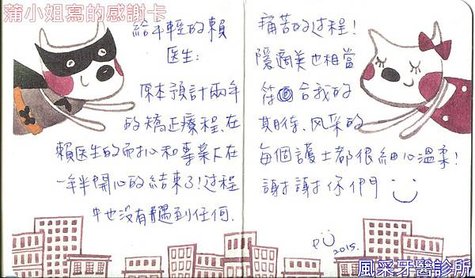 蒲小姐寫的感謝卡
給年輕的賴
醫生:
原本預計兩年
的矯正療程,在
賴医生的耐心和專業下在
一年半開心的結束了!過程
中也沒有遇到任何
痛苦的过程!
隱適美也相當
符合我的
期待,风采的
每個護士都很細心溫柔!
謝謝你們
2015.
風采牙醫診所